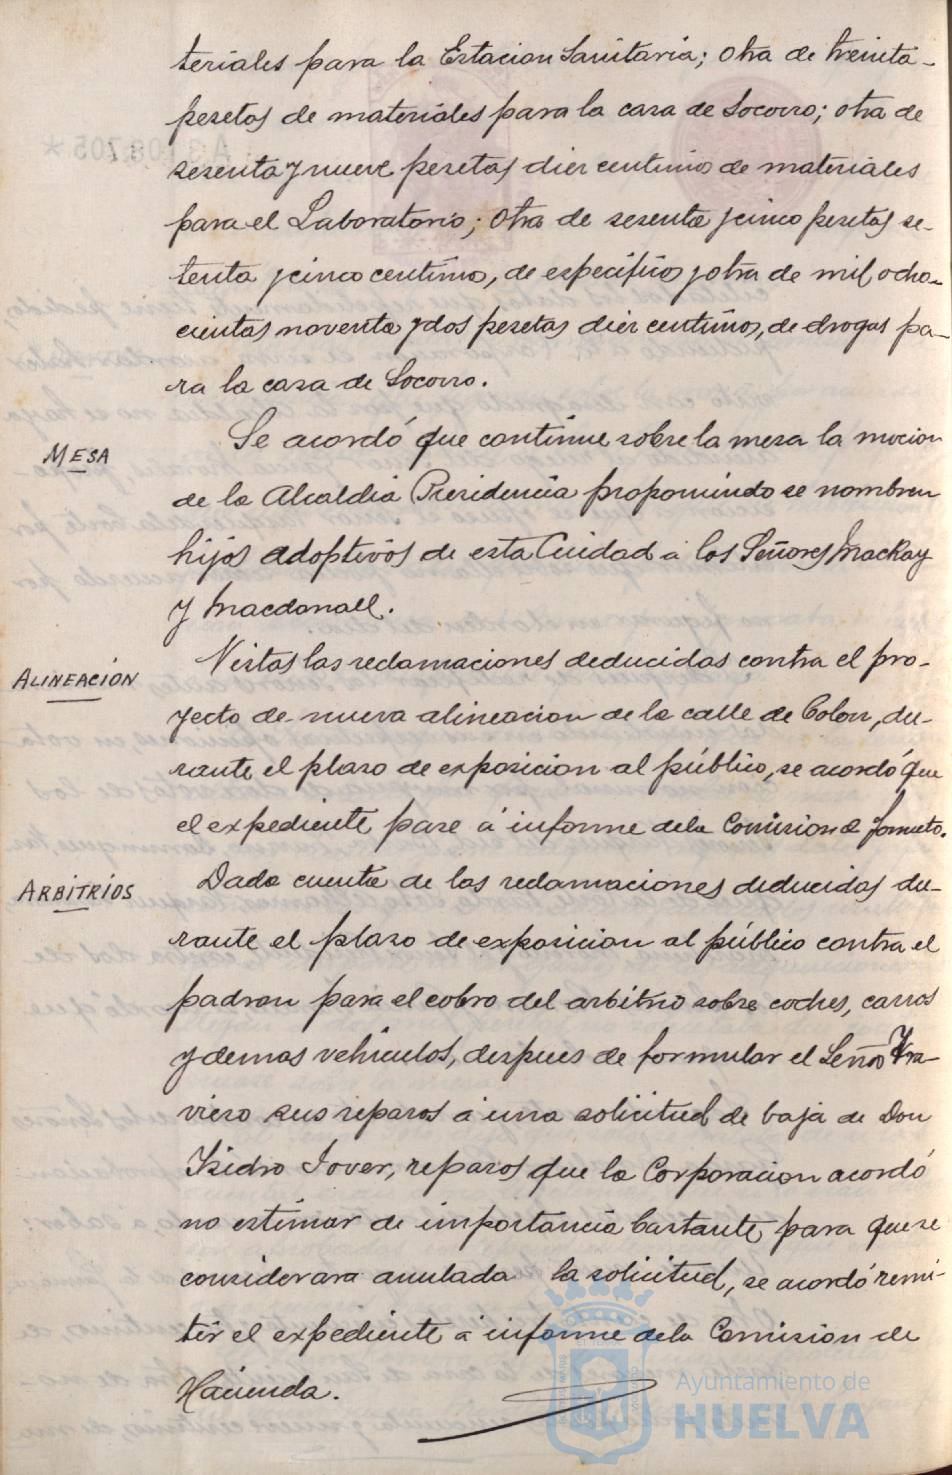 teriales para la Estacion Sanitaria; otra de treinta
pesetas de materiales para la casa de Socorro; otra de
sesenta y nueve pesetas diez centimos de materiales
para el Laboratorio; otra de sesenta y cinco pesetas se-
tenta y cinco centimos, de especificos y otra de mil ocho-
cientas noventa y dos pesetas diez centimos, de drogas pa-
ra la casa de Socorro.
MESA
Se acordó que continue sobre la mesa la mocion
de la Alcaldia Presidencia proponiendo se nombren
hijos adoptivos de esta Ciudad á los Señores Mackay
y Macdonall.
ALINEACIÓN
Vistas las reclamaciones deducidas contra el pro-
yecto de nueva alineacion de la calle de Colon, du-
rante el plazo de exposicion al público, se acordó que
el expediente pase á informe de la Comision de Fomento.
ARBITRIOS
Dada cuenta de las reclamaciones deducidas du-
rante el plazo de exposicion al público contra el
padron para el cobro del arbitrio sobre coches, carros
y demas vehiculos, despues de formular el Señor Tra-
vieso sus reparos á una solicitud de baja de Don
Isidro Jover, reparos que la Corporacion acordó
no estimar de importancia bastante para que se
considerara anulada la solicitud, se acordó remi-
tir el expediente á informe de la Comision de
Hacienda.
Ayuntamiento de
HUELVA